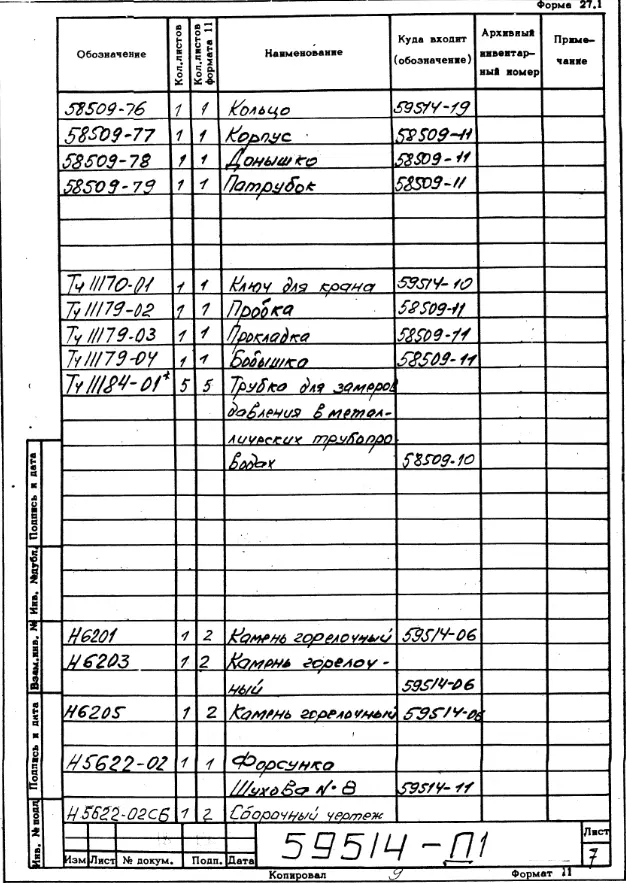 Форма 27.1
Обозначение Кол.листов Кол.листов формата 11 Наименование Куда входит (обозначение) Архивный инвентарный номер Примечание
58509-76 1 1 Кольцо 59514-19
58509-77 1 1 Корпус 58509-11
58509-78 1 1 Донышко 58509-11
58509-79 1 1 Патрубок 58509-11
Тч 11170-01 1 1 Ключ для крана 59514-10
Тч 11179-02 1 1 Пробка 58509-11
Тч 11179-03 1 1 Прокладка 58509-11
Тч 11179-04 1 1 Бобышка 58509-11
Тч 11184-01* 5 5 Трубка для замеров
давления в метал-
лических трубопро-
водах 58509-10
Н6201 1 2 Камень горелочный 59514-06
Н6203 1 2 Камень горелоч-
ный 59514-06
Н6205 1 2 Камень горелочный 59514-06
Н5622-02 1 1 Форсунка
Шухова №8 59514-11
Н5622-02СБ 1 2 Сборочный чертеж
Инв. № подл. Подпись и дата Взам.инв. № Инв. №дубл. Подпись и дата
59514-П1
Лист
7
Изм Лист № докум. Подп. Дата
Копировал Формат 11